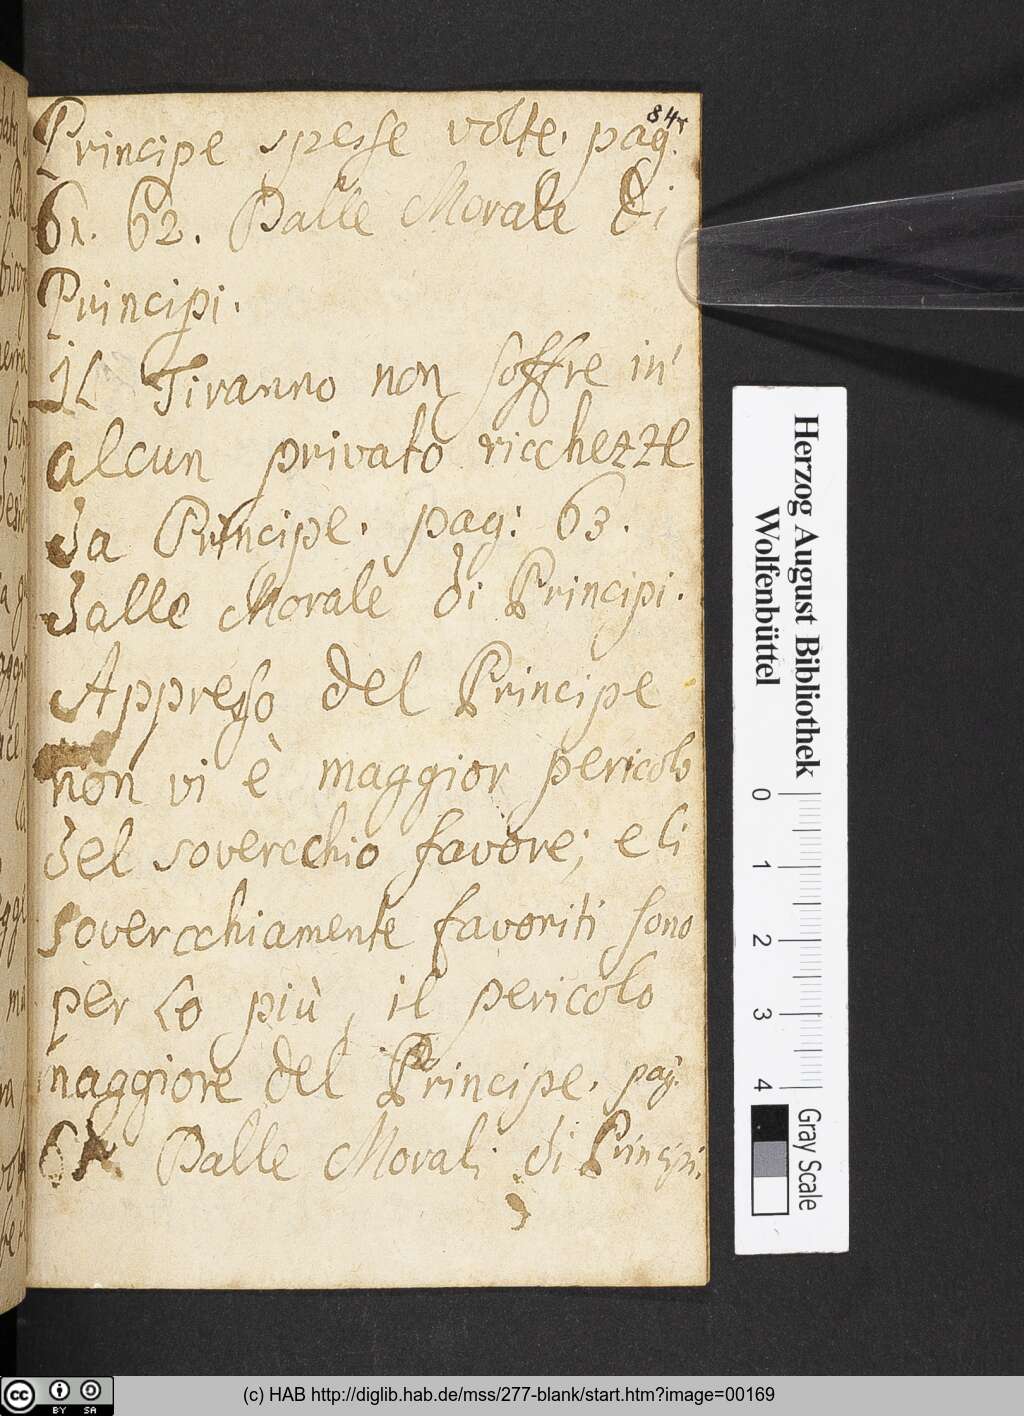 84r
Principe spesse volte. pag.
61. 62. Dalle Morale di
Principi.
Il Tiranno non soffre in'
alcun privato ricchezze
da Principe. pag: 63.
dalle Morale di Principi.
Appresso del Principe
non vi è maggior pericolo
del soverchio favore; e li
soverchiamente favoriti sono
per lo più, il pericolo
maggiore del Principe. pag:
Dalle Morali di Principi.
Herzog August Bibliothek
Wolfenbüttel
0 1 2 3 4
Gray Scale
cc BY SA
(c) HAB http://diglib.hab.de/mss/277-blank/start.htm?image=00169